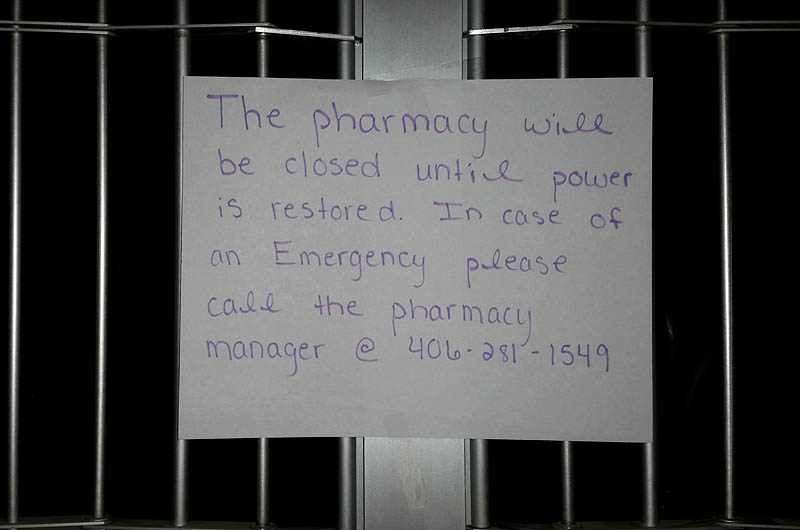 The pharmacy will
be closed until power
is restored. In case of
an Emergency please
call the pharmacy
manager @ 406-281-1549